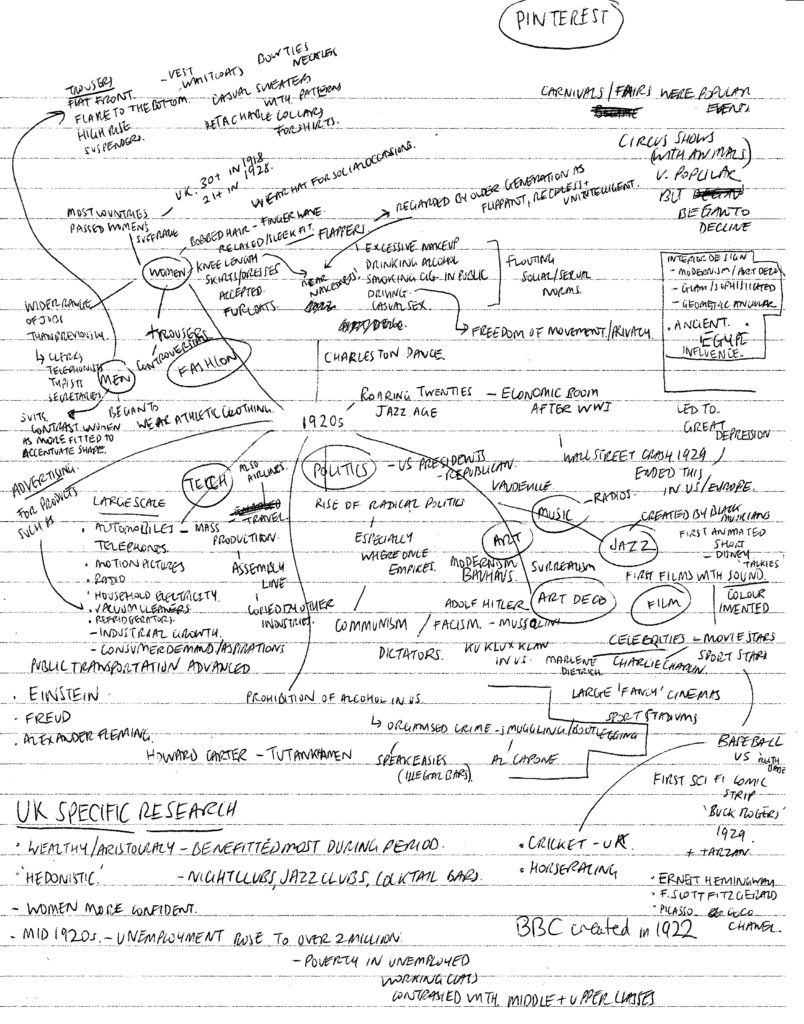 PINTEREST
TROUSERS
FLAT FRONT.
FLARE TO THE BOTTOM.
HIGH RISE
SUSPENDERS.
- VEST
WAISTCOATS
BOWTIES
NECKTIES
CASUAL SWEATERS
WITH PATTERNS
DETACHABLE COLLARS
FOR SHIRTS.
CARNIVALS / FAIRS WERE POPULAR
EVENTS
CIRCUS SHOWS
(WITH ANIMALS)
V. POPULAR
BUT
BEGAN TO
DECLINE
UK. 30+ IN 1918
21+ IN 1928.
MOST COUNTRIES
PASSED WOMENS
SUFFRAGE
WEAR HAT FOR SOCIAL OCCASIONS.
REGARDED BY OLDER GENERATION AS
FLIPPANT, RECKLESS +
UNINTELLIGENT.
WOMEN
BOBBED HAIR - FINGER WAVE
RELAXED/SLEEK FIT.
KNEE LENGTH
SKIRTS/DRESSES
ACCEPTED
FUR COATS.
FLAPPERS
NEAR
NAKEDNESS!
EXCESSIVE MAKEUP
DRINKING ALCOHOL
SMOKING CIG. IN PUBLIC
DRIVING.
CASUAL SEX.
FLOUTING
SOCIAL/SEXUAL
NORMS.
FREEDOM OF MOVEMENT/PRIVACY.
INTERIOR DESIGN
- MODERNISM / ART DECO
- GLAM/SOPHISTICATED
- GEOMETRIC ANGULAR
• ANCIENT.
EGYPT
INFLUENCE.
WIDER RANGE
OF JOBS
THAN PREVIOUSLY.
↳ CLERKS
TELEPHONISTS
TYPISTS
SECRETARIES.
+ TROUSERS
CONTROVERSIAL
FASHION
MEN
SUITS
CONTRAST WOMEN
AS MORE FITTED TO
ACCENTUATE SHAPE.
BEGAN TO
WEAR ATHLETIC CLOTHING.
CHARLESTON DANCE.
1920s
ROARING TWENTIES - ECONOMIC BOOM
JAZZ AGE AFTER WWI
LED TO
GREAT
DEPRESSION
WALL STREET CRASH 1929
ENDED THIS
IN US/EUROPE.
ADVERTISING.
FOR PRODUCTS
SUCH AS
TECH
ALSO
AIRLINES.
TRAVEL.
LARGE SCALE
• AUTOMOBILES - MASS
PRODUCTION.
TELEPHONES.
• MOTION PICTURES
• RADIO
• HOUSEHOLD ELECTRICITY
• VACUUM CLEANERS.
• REFRIDGERATORS.
- INDUSTRIAL GROWTH.
- CONSUMER DEMAND/ASPIRATIONS
PUBLIC TRANSPORTATION ADVANCED
ASSEMBLY
LINE
COPIED IN OTHER
INDUSTRIES.
POLITICS - US PRESIDENTS
- REPUBLICAN.
RISE OF RADICAL POLITICS
ESPECIALLY
WHERE ONCE
EMPIRES.
COMMUNISM / FACISM. - MUSSOLINI
ADOLF HITLER
DICTATORS.
KU KLUX KLAN
IN US.
VAUDEVILLE.
MUSIC
- RADIOS.
JAZZ
CREATED BY BLACK
MUSICIANS
ART
MODERNISM
BAUHAUS.
SURREALISM
ART DECO
FIRST ANIMATED
SHORT
- DISNEY
'TALKIES'
FIRST FILMS WITH SOUND.
FILM
COLOUR
INVENTED
CELEBRITIES - MOVIE STARS
SPORT STARS
MARLENE
DIETRICH
CHARLIE CHAPLIN.
LARGE 'FANCY' CINEMAS
SPORT STADIUMS
• EINSTEIN
• FREUD
• ALEXANDER FLEMING.
HOWARD CARTER - TUTANKHAMEN
PROHIBITION OF ALCOHOL IN US.
↳ ORGANISED CRIME - SMUGGLING/BOOTLEGGING
SPEAKEASIES
(ILLEGAL BARS).
AL CAPONE
BASEBALL
US
FIRST SCI FI COMIC
STRIP
'BUCK ROGERS'
1929
+ TARZAN.
UK SPECIFIC RESEARCH
• WEALTHY/ARISTOCRACY - BENEFITTED MOST DURING PERIOD.
• 'HEDONISTIC.' - NIGHTCLUBS, JAZZ CLUBS, COCKTAIL BARS.
- WOMEN MORE CONFIDENT.
- MID 1920s. - UNEMPLOYMENT ROSE TO OVER 2 MILLION.
- POVERTY IN UNEMPLOYED
WORKING CLASS
CONTRASTED WITH MIDDLE + UPPER CLASSES
• CRICKET - UK
• HORSERACING
• ERNEST HEMINGWAY
• F. SCOTT FITZGERALD
• PICASSO. COCO
CHANEL.
BBC created in 1922